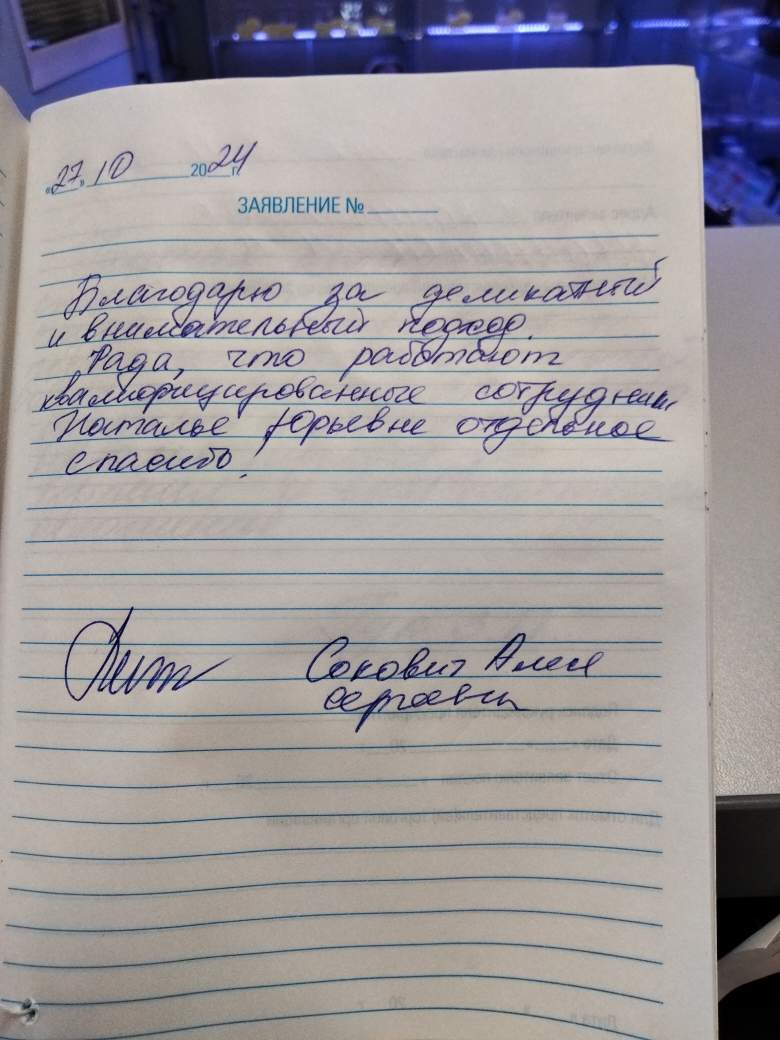 «27» 10 2024 г.
ЗАЯВЛЕНИЕ №
Благодарю за деликатный
и внимательный подход.
Рада, что работают
квалифицированные сотрудники
Наталье Юрьевне отдельное
спасибо!
Сергеевна